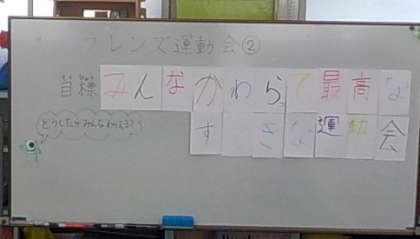 フレンズ運動会②
目標 みんなかわらって最高な
す さな運動会
どうしたらみんなわらえる？